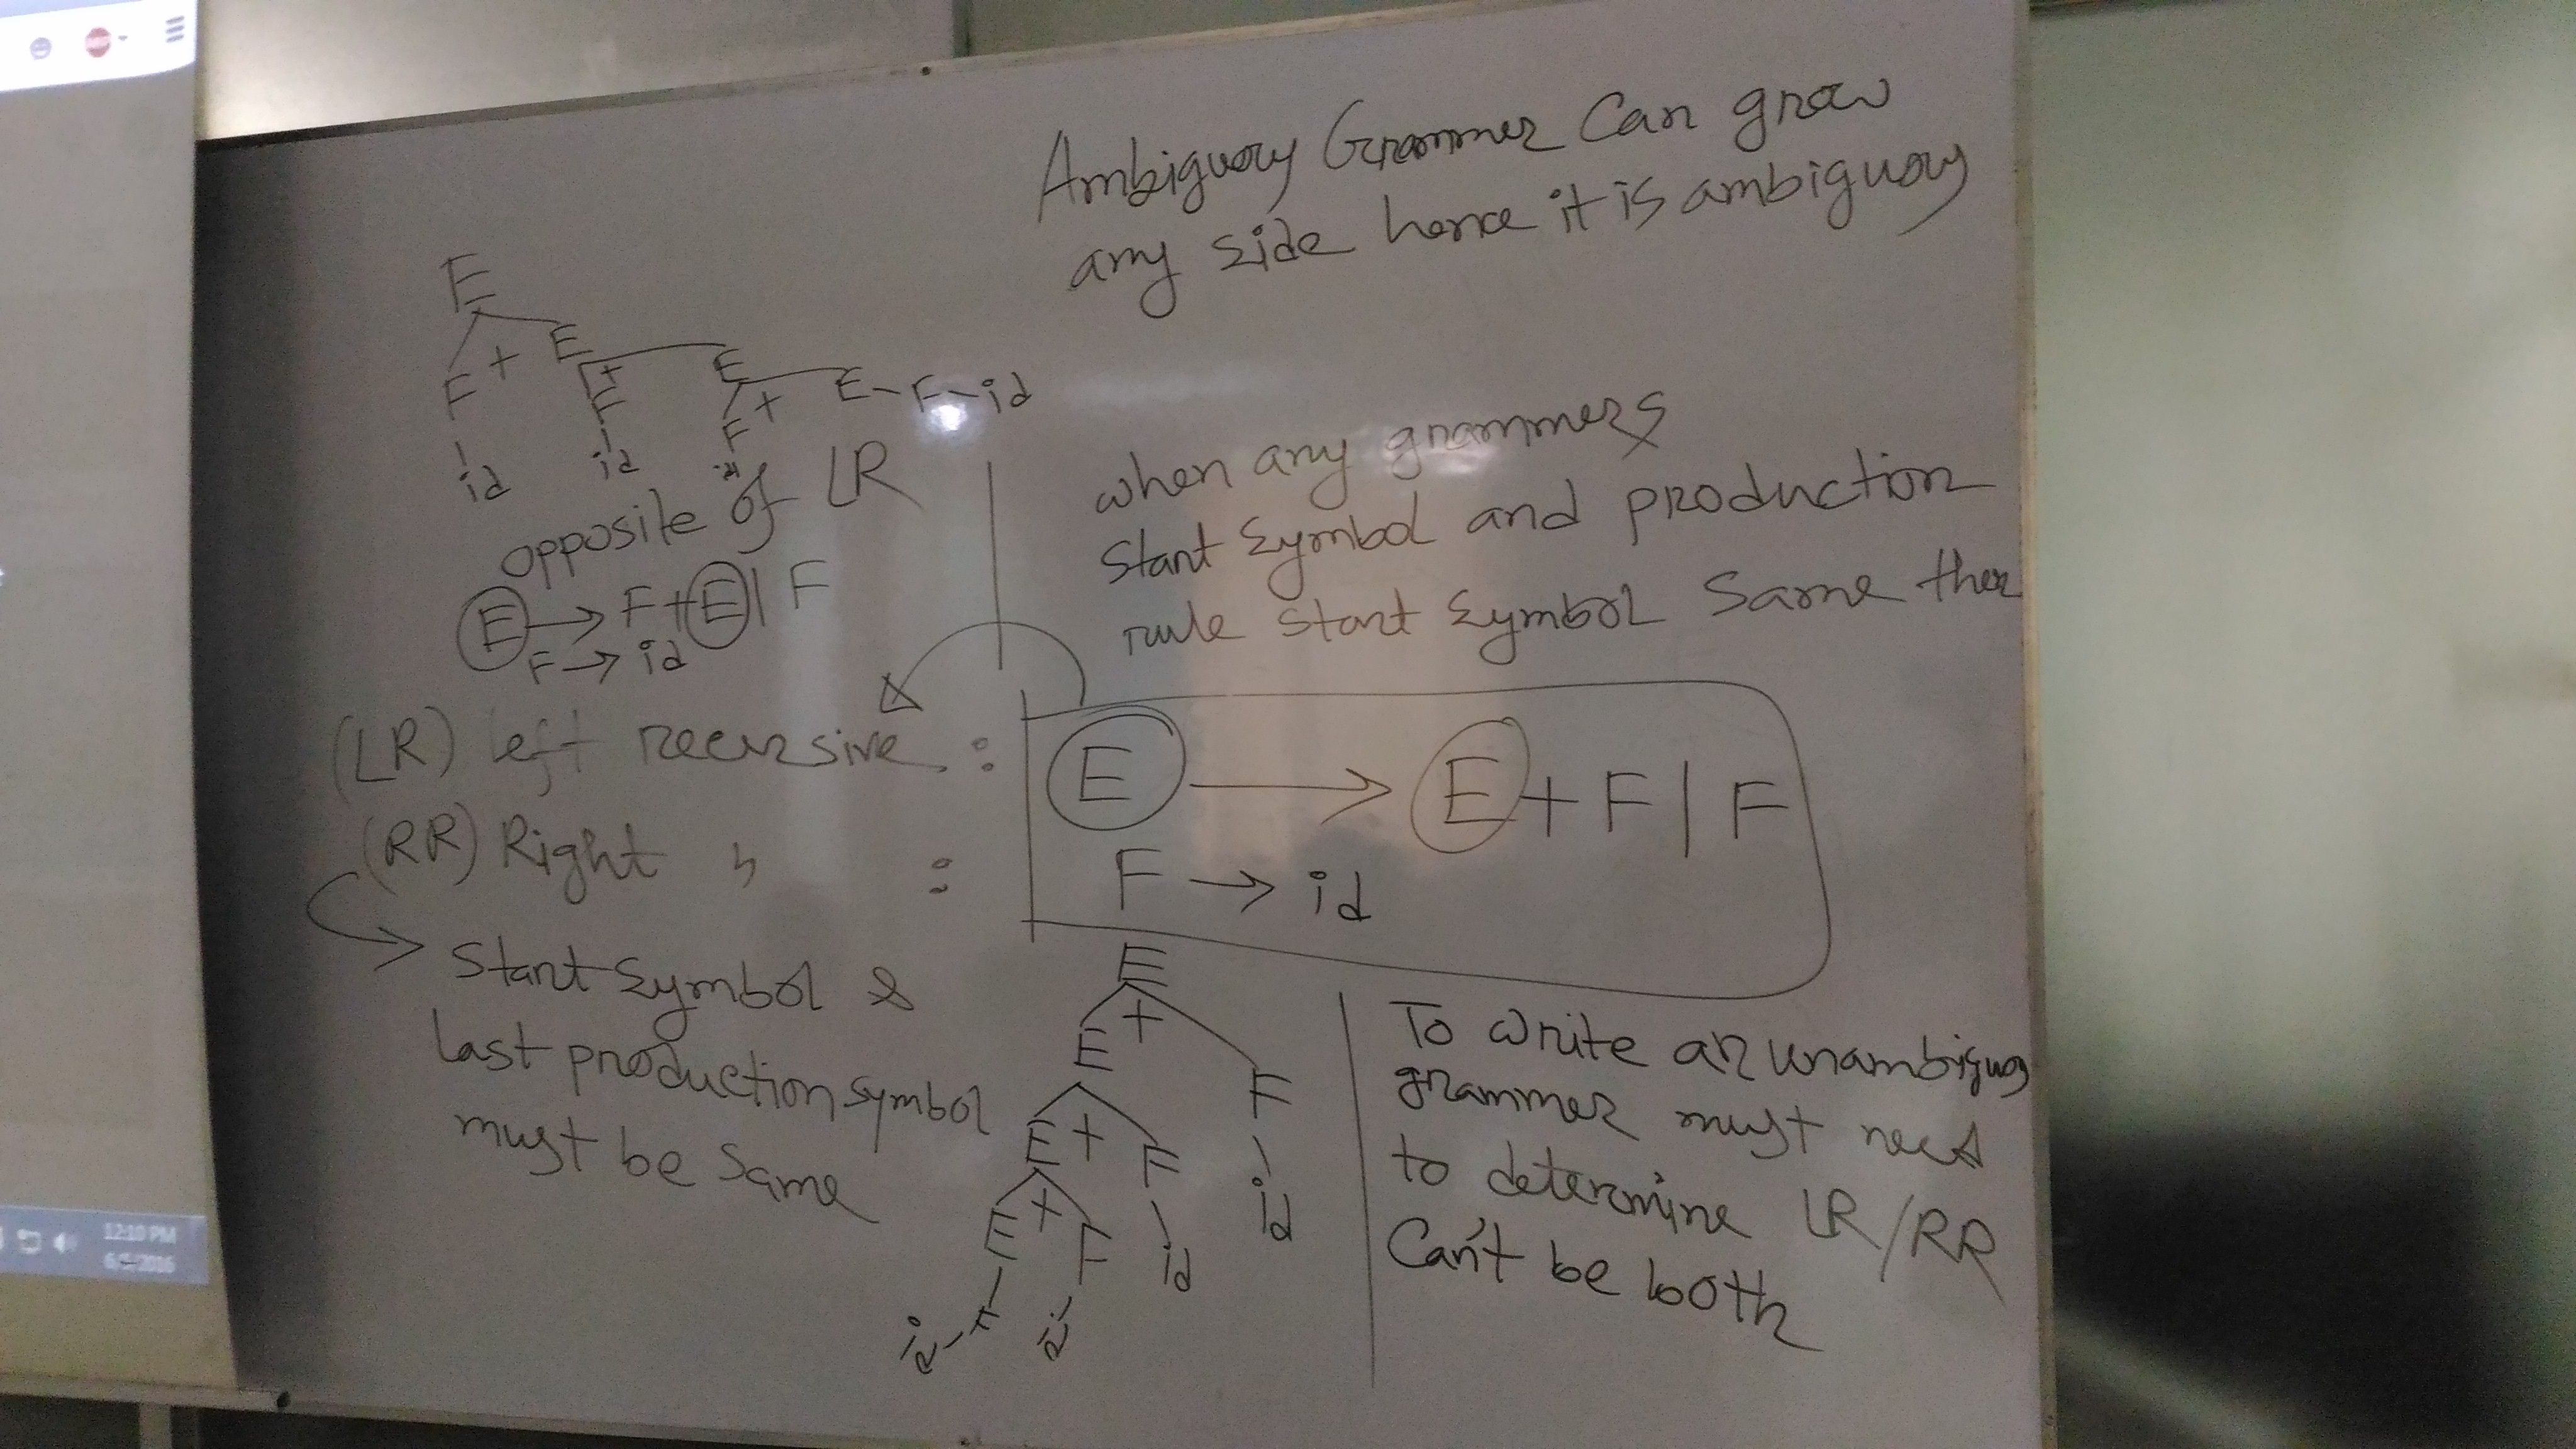 Ambiguouy Grammer Can grow
any side hence it is ambiguouy
E
F + E
F + E
F + E - F - id
id id id
opposite of LR
E → F + E | F
F → id
when any grammers
Start Symbol and production
rule start symbol Same then
(LR) left recursive :
(RR) Right " :
E → E + F | F
F → id
Start Symbol &
last production symbol
must be same
E
E + F
E + F id
E + F id
id - F id
To write an unambiguoy
grammer must need
to determine LR/RR
Can't be both
12:10 PM